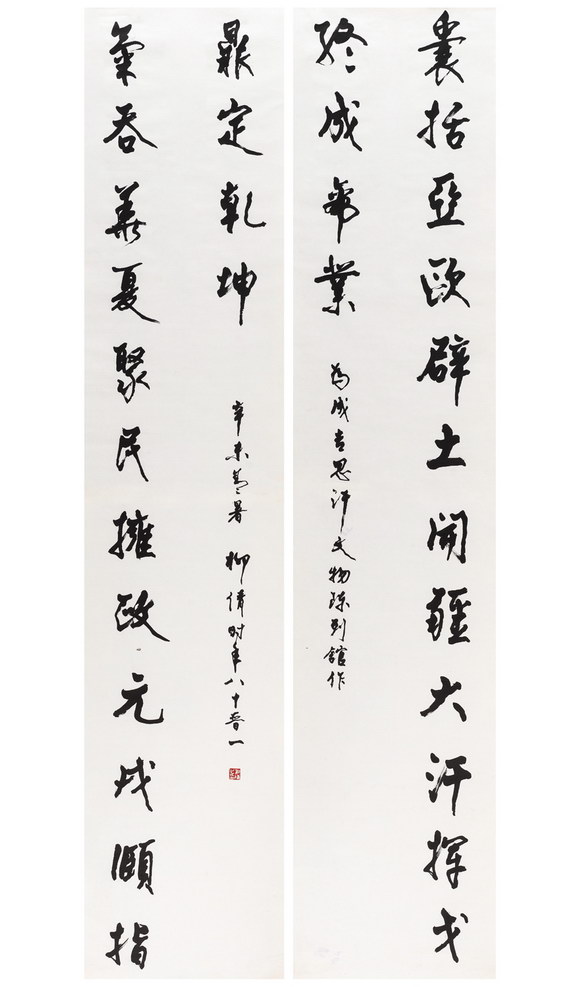 囊括亞歐辟土開疆大汗揮戈
終成帝業
為成吉思汗文物陳列館作
氣吞華夏聚民擁政元戎頤指
鼎定乾坤
辛未暑 柳倩时年八十晋一